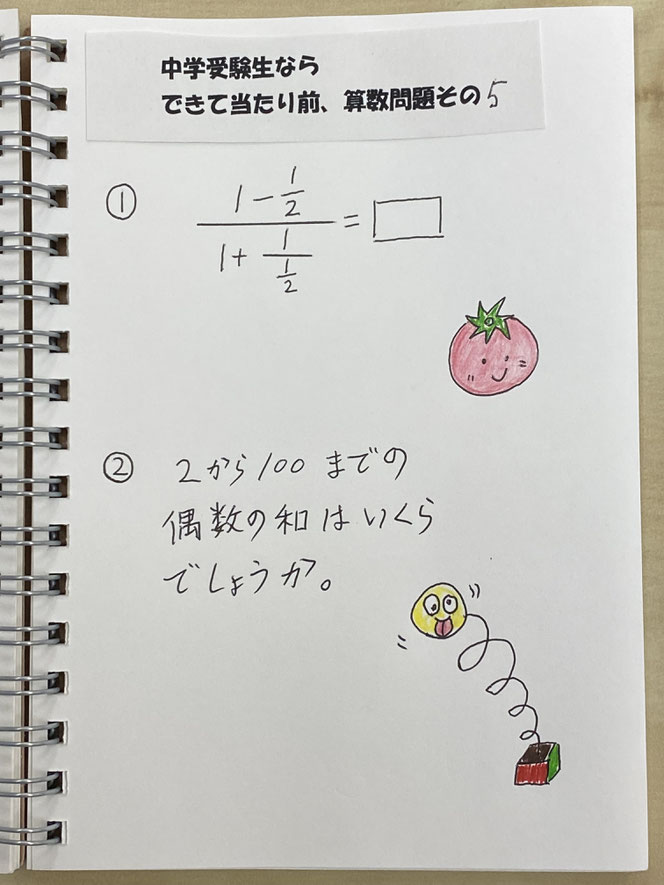 中学受験生なら
できて当たり前、算数問題その5
① (1-1/2)/(1+1/(1/2))=□
② 2から100までの
偶数の和はいくら
でしょうか。